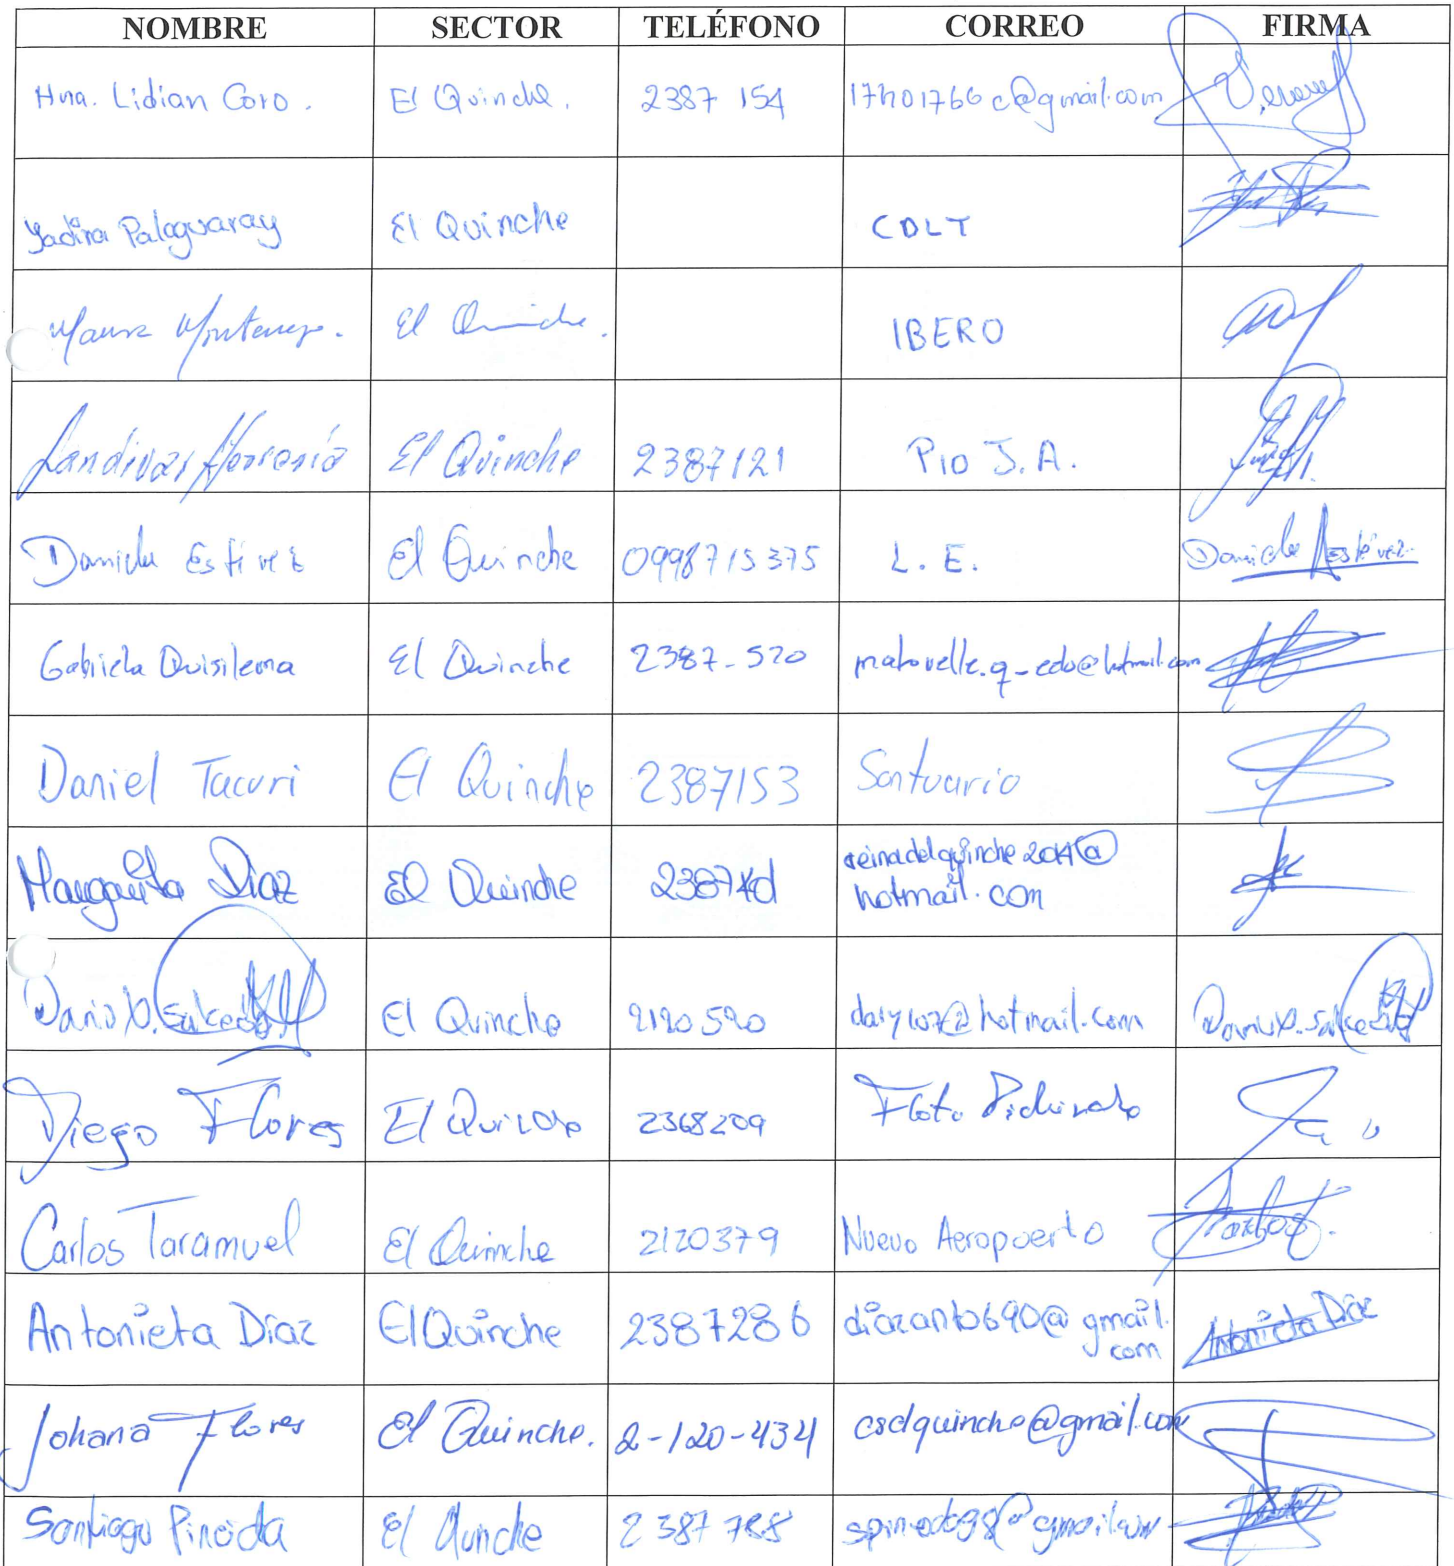 NOMBRE SECTOR TELÉFONO CORREO FIRMA
Hna. Lidian Coro. El Quinche. 2387 154 17h01766c@gmail.com
Yadira Palaguaray El Quinche CDLT
El Quinche. IBERO
Landivar El Quinche 2387121 Pio J.A.
Daniela Estívez El Quinche 0998715375 L. E. Daniela Estévez
Gabriela Quisilema El Quinche 2387-520 matovelle.q-edu@hotmail.com
Daniel Tacuri El Quinche 2387153 Santuario
Margarita Diaz El Quinche reinadelquinche2014@
hotmail.com
Dario X. Salcedo El Quinche 2120520 hotmail.com Dario X. Salcedo
Diego Flores El 2368209
Carlos Taramuel El Quinche 2120379 Nuevo Aeropuerto
Antonieta Diaz El Quinche 2387286 diazanto690@gmail.
com Antonieta Diaz
Johana Flores El Quinche. 2-120-434 csdquinche@gmail.com
Santiago Pineida El Qunche 2387788